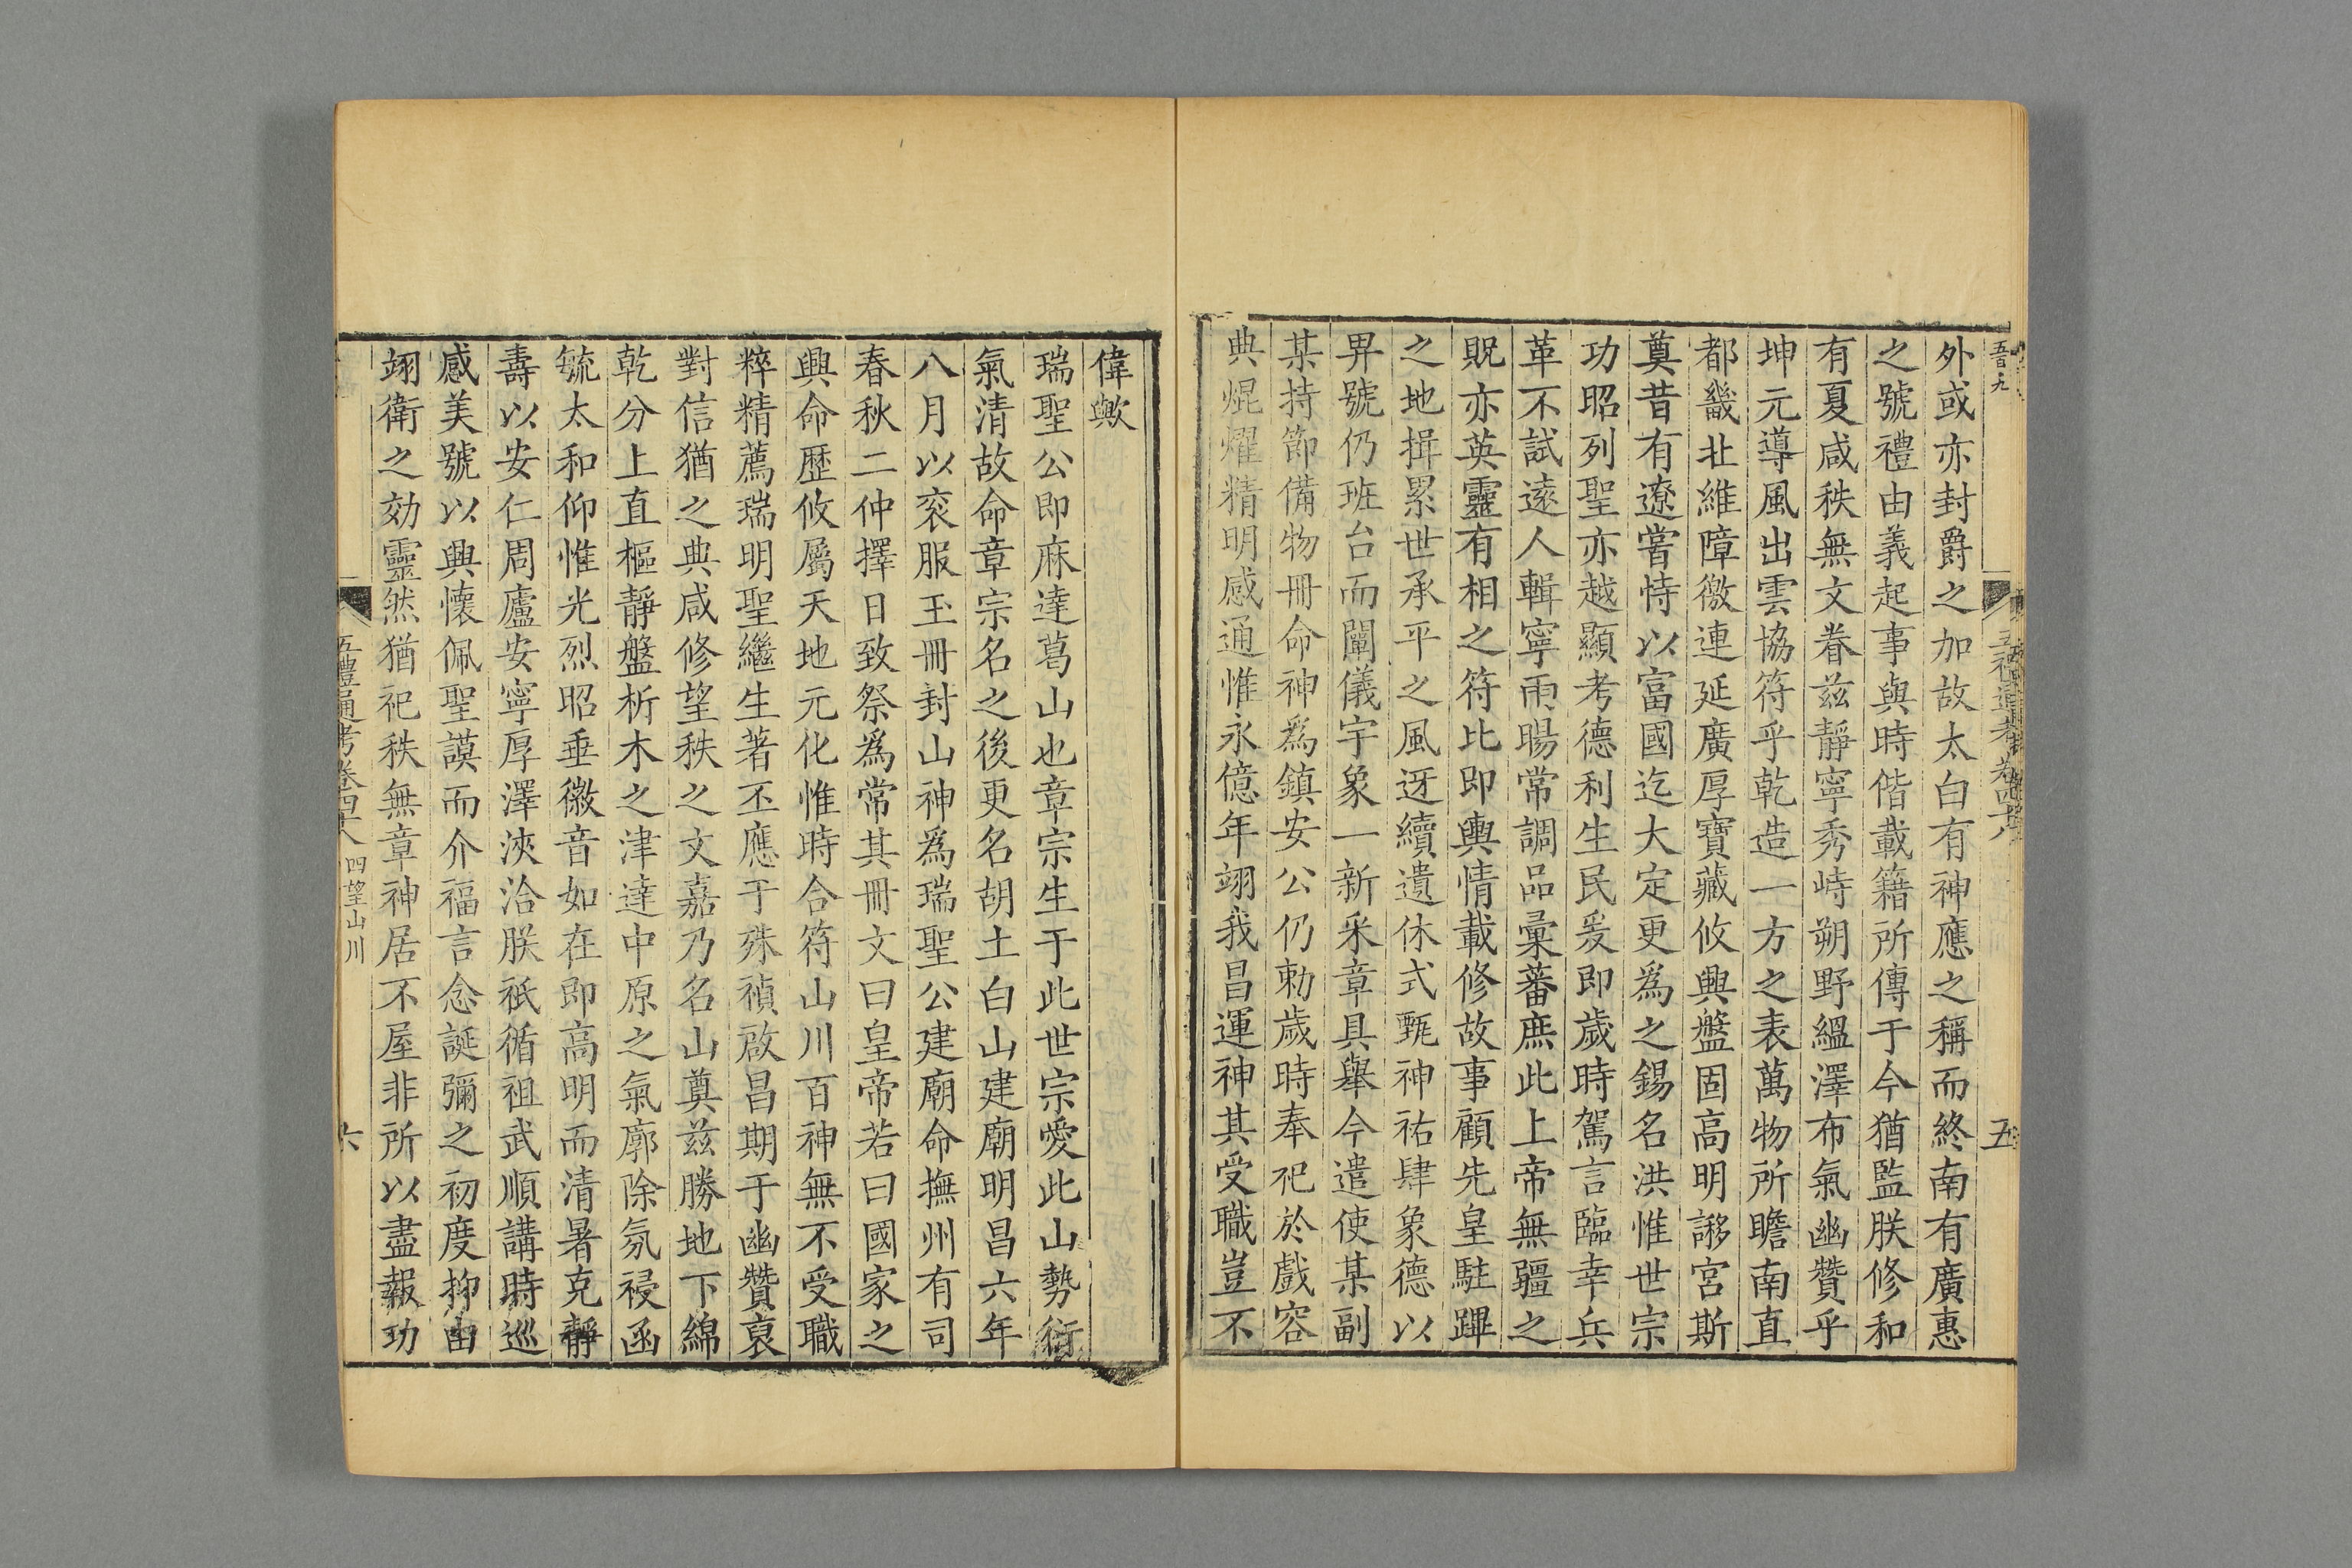 外或亦封爵之加故太白有神應之稱而終南有廣惠
之號禮由義起事與時偕載籍所傳于今猶監朕修和
有夏咸秩無文眷兹靜寧秀峙朔野縕澤布氣幽贊乎
坤元導風出雲協符乎乾造一方之表萬物所瞻南直
都畿北維障徼連延廣厚寶藏攸興盤固高明謻宮斯
奠昔有遼嘗恃以富國迄大定更爲之錫名洪惟世宗
功昭列聖亦越顯考德利生民爰即歲時駕言臨幸兵
革不試遠人輯寧雨暘常調品彙蕃庶此上帝無疆之
貺亦英靈有相之符比即輿情載修故事顧先皇駐蹕
之地揖累世承平之風迓續遺休式甄神祐肆象德以
畀號仍班台而闡儀宇象一新采章具舉今遣使某副
某持節備物冊命神爲鎮安公仍勅歲時奉祀於戲容
典焜燿精明感通惟永億年翊我昌運神其受職豈不
偉歟
瑞聖公即麻達葛山也章宗生于此世宗愛此山勢衍
氣清故命章宗名之後更名胡土白山建廟明昌六年
八月以衮服玉冊封山神爲瑞聖公建廟命撫州有司
春秋二仲擇日致祭爲常其冊文曰皇帝若曰國家之
興命歷攸屬天地元化惟時合符山川百神無不受職
粹精薦瑞明聖繼生著丕應于殊禎啟昌期于幽贊裒
對信猶之典咸修望秩之文嘉乃名山奠兹勝地下綿
乾分上直樞靜盤析木之津達中原之氣廓除氛祲函
毓太和仰惟光烈昭垂徽音如在即高明而清暑克靜
壽以安仁周廬安寧厚澤浹洽朕祇循祖武順講時巡
感美號以興懷佩聖謨而介福言念誕彌之初度抑由
翊衛之効靈然猶祀秩無章神居不屋非所以盡報功
五禮通考卷四十八 四望山川
六
五